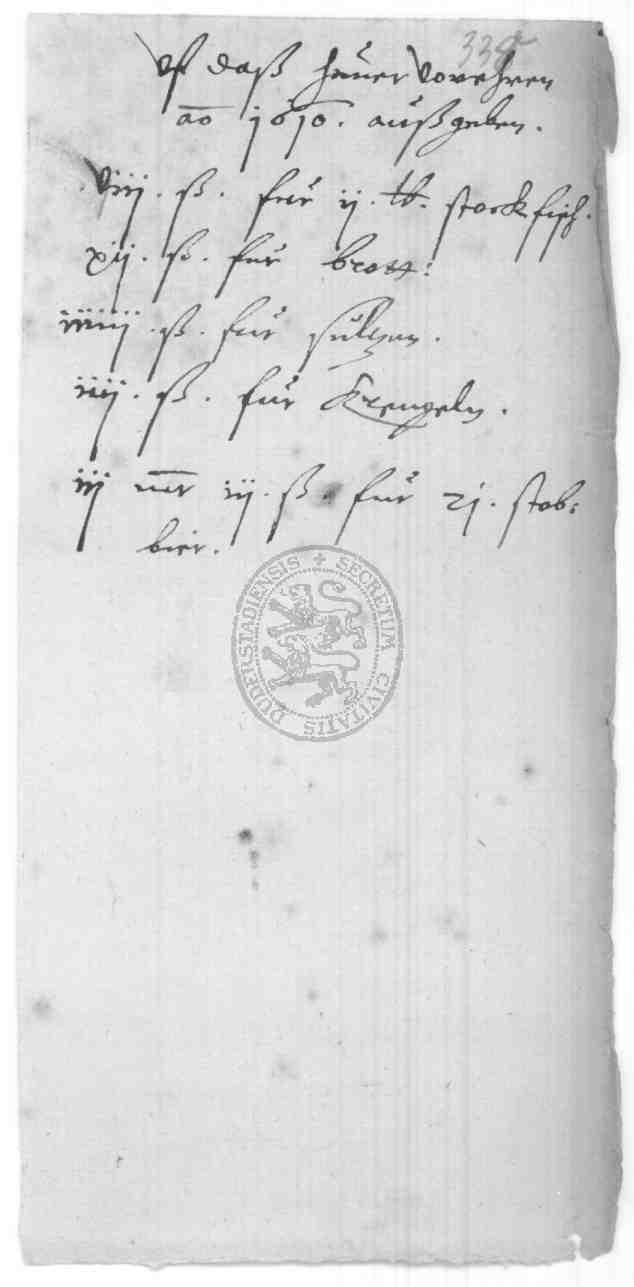 338
vf daß heuer Vorehren
ao 1610. außgeben.
viij. ß. fur ij. lb. stockfisch.
xij. ß. fur brott:
ß. fur sultzen.
iiij. ß. fur Krengeln.
iij mr iij. ß. fur 21. stob:
bier.
SECRETUM CIVITATIS DUDERSTADIENSIS